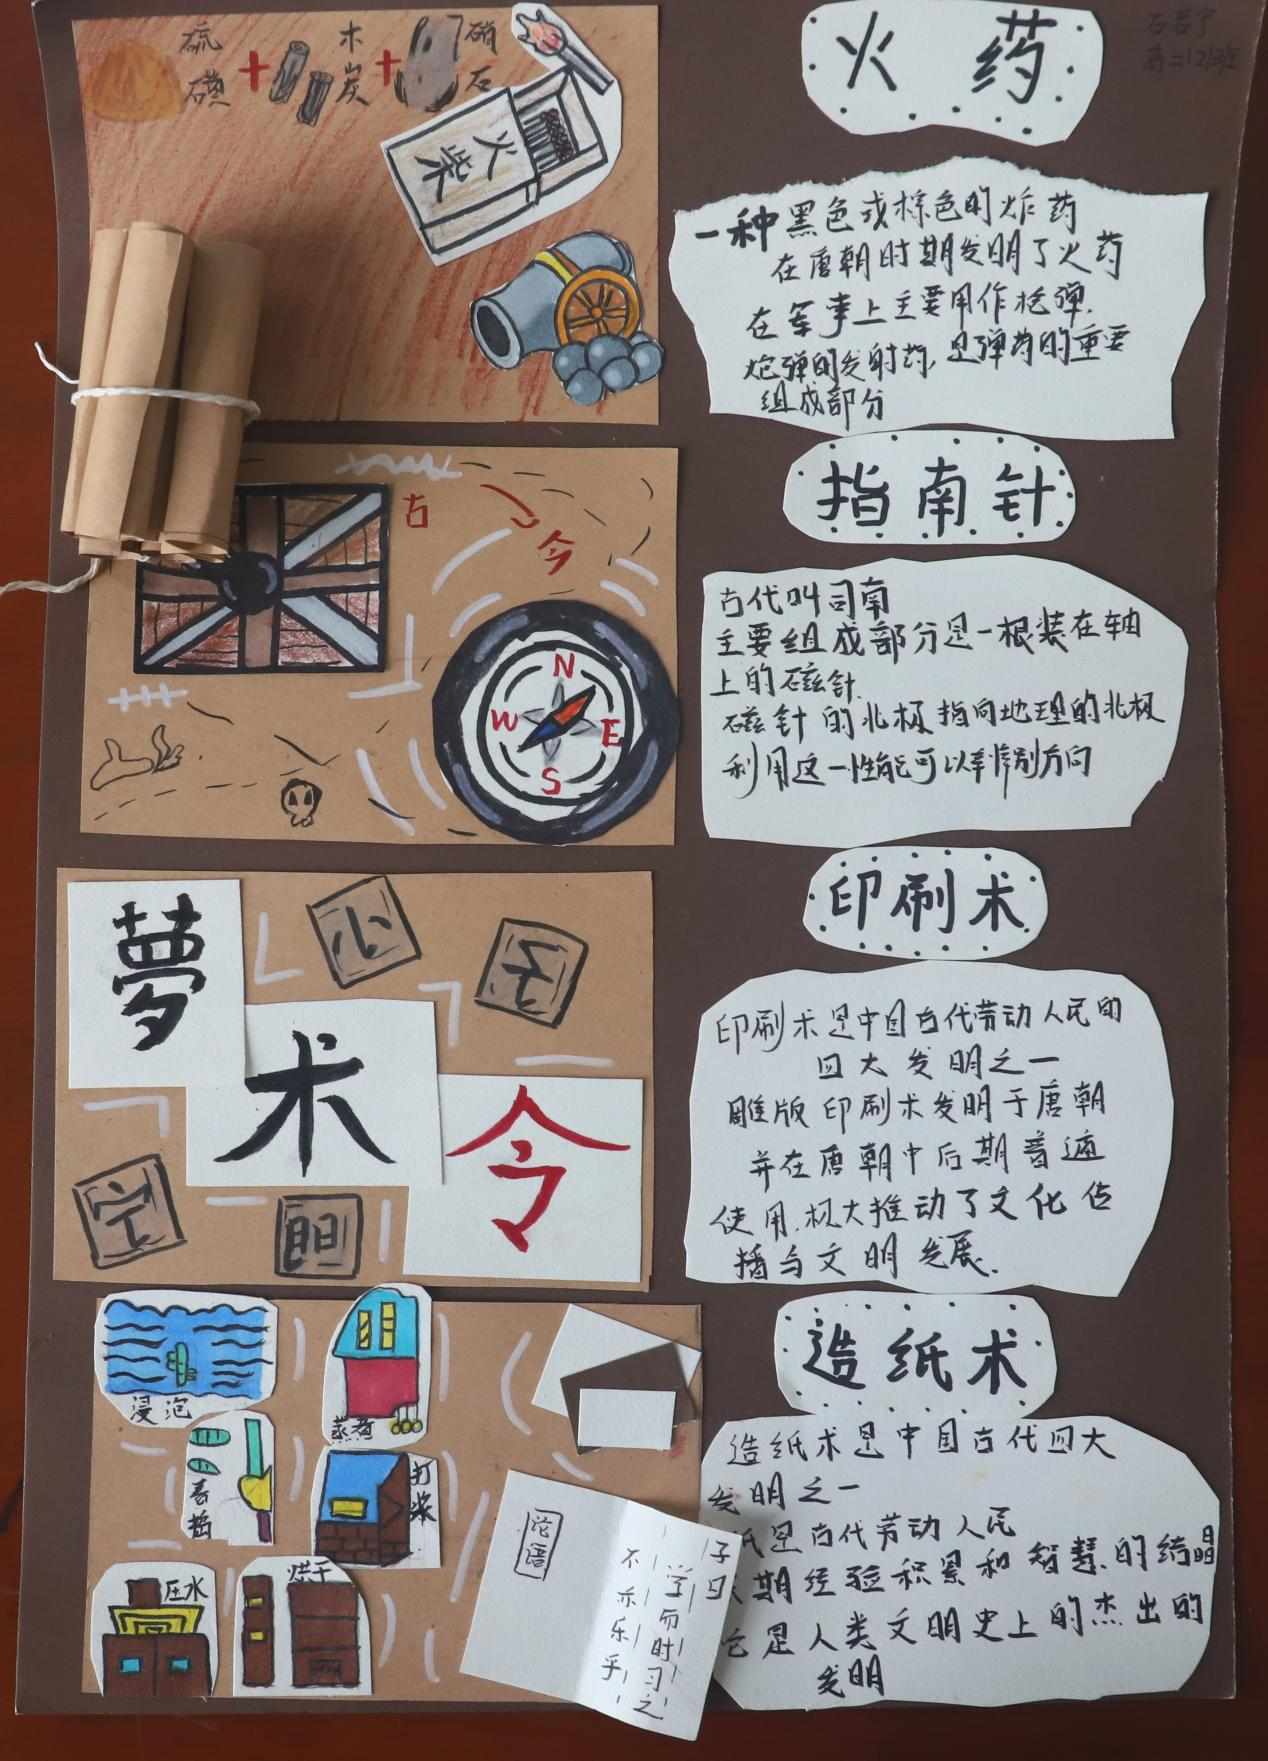 硫磺+木炭+硝石
火柴
火药
石若宁
高二12班
一种黑色或棕色的炸药
在唐朝时期发明了火药
在军事上主要用作枪弹.
炮弹的发射药,是弹药的重要
组成部分
古
今
N
W
E
S
指南针
古代叫司南
主要组成部分是一根装在轴
上的磁针.
磁针的北极指向地理的北极
利用这一性能可以辨别方向
夢
心
术
令
印刷术
印刷术是中国古代劳动人民的
四大发明之一
雕版印刷术发明于唐朝
并在唐朝中后期普遍
使用.极大推动了文化传
播与文明发展.
浸泡
蒸煮
舂捣
打浆
压水
烘干
论语
子曰
学而时习之
不亦乐乎
造纸术
造纸术是中国古代四大
发明之一
纸是古代劳动人民
期经验积累和智慧.的结晶
它是人类文明史上的杰出的
发明